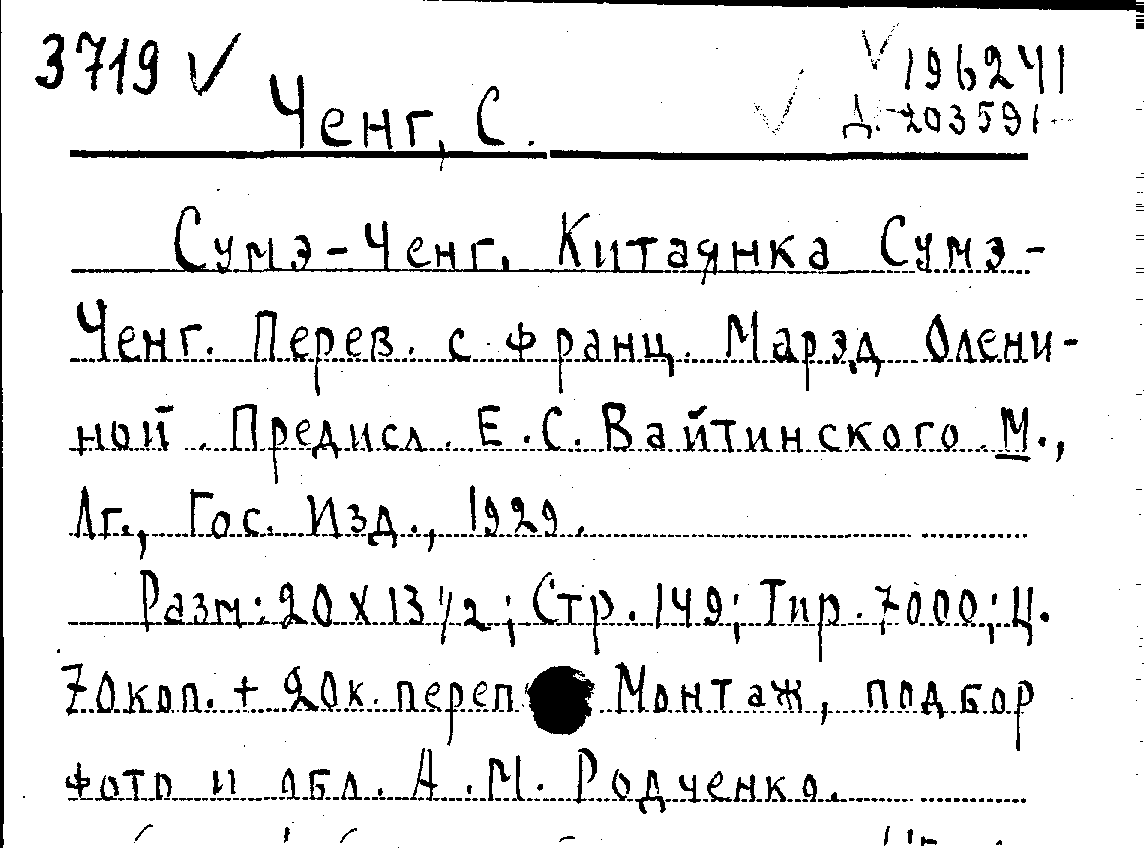 3719 ✓ 196241
Ченг, С. Д. 203591
Сумэ-Ченг. Китаянка Сумэ-
Ченг. Перев. с франц. Марэд Олени-
ной. Предисл. Е. С. Вайтинского. М.,
Лг., Гос. Изд., 1929.
Разм: 20 х 13 1/2; Стр. 149; Тир. 7000; Ц.
70 коп. + 20 к. переп Монтаж, подбор
фото и обл. А. М. Родченко.